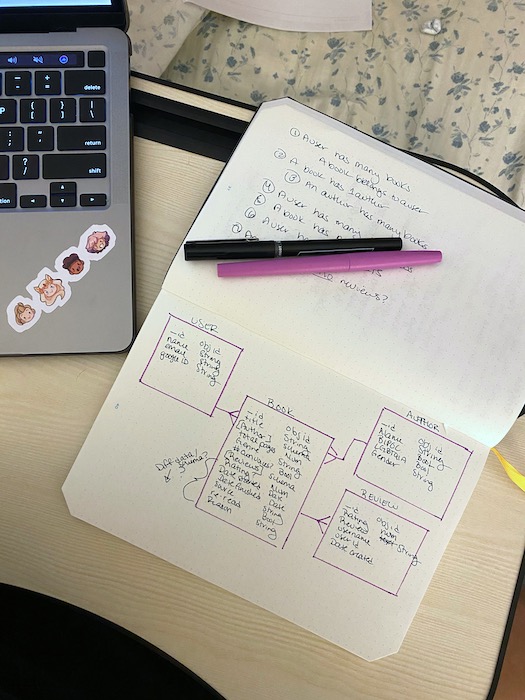 delete
return
shift
① A user has many books
A book belongs to a user
② A book has 1 author
③ An author has many books
④ A user has many
⑤ A book has
⑥ A user has
reviews?
USER
_id objid
name String
email String
google ID String
BOOK
_id objid
title String
[Author] schema
total pages Num
Genre String
[Reviews] schema
Rating Num
Date started Date
Date finished Date
String
re-read Bool
Reason String
Diff data/
schema?
AUTHOR
_id Obj id
Name String
BIPOC Bool
LGBTQIA Bool
Gender String
REVIEW
_id Objid
Rating num
Review String
username
user id
Date created